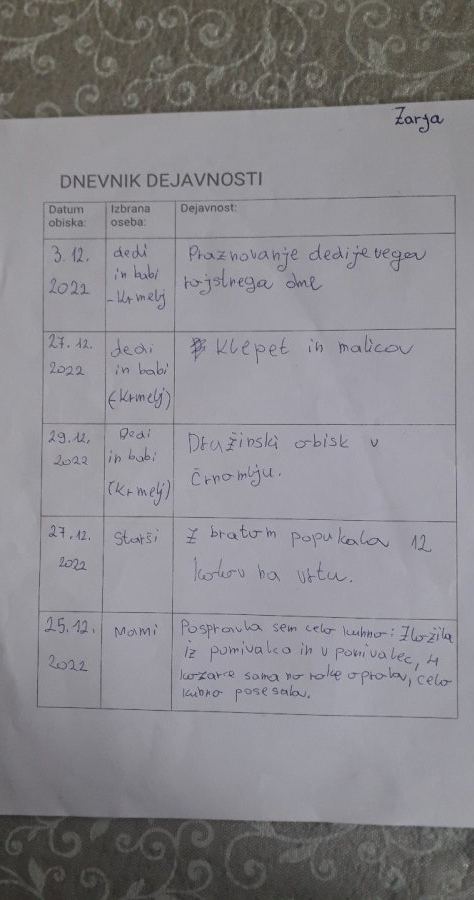 Zarja
DNEVNIK DEJAVNOSTI
Datum obiska:
Izbrana oseba:
Dejavnost:
3. 12.
2022
dedi
in babi
- Krmelj
Praznovanje dedijevega
rojstnega dne
27. 12.
2022
dedi
in babi
(Krmelj)
Klepet in malica
29. 12.
2022
Dedi
in babi
(Krmelj)
Družinski obisk v
Črnomlju.
27. 12.
2022
Starši
Z bratom popukala 12
na vrtu.
25. 12.
2022
Mami
Pospravla sem celo kuhno: Zložila
iz pomivalca in v pomivalec, 4
kozarce sama na roke oprala, celo
kuhno posesala.